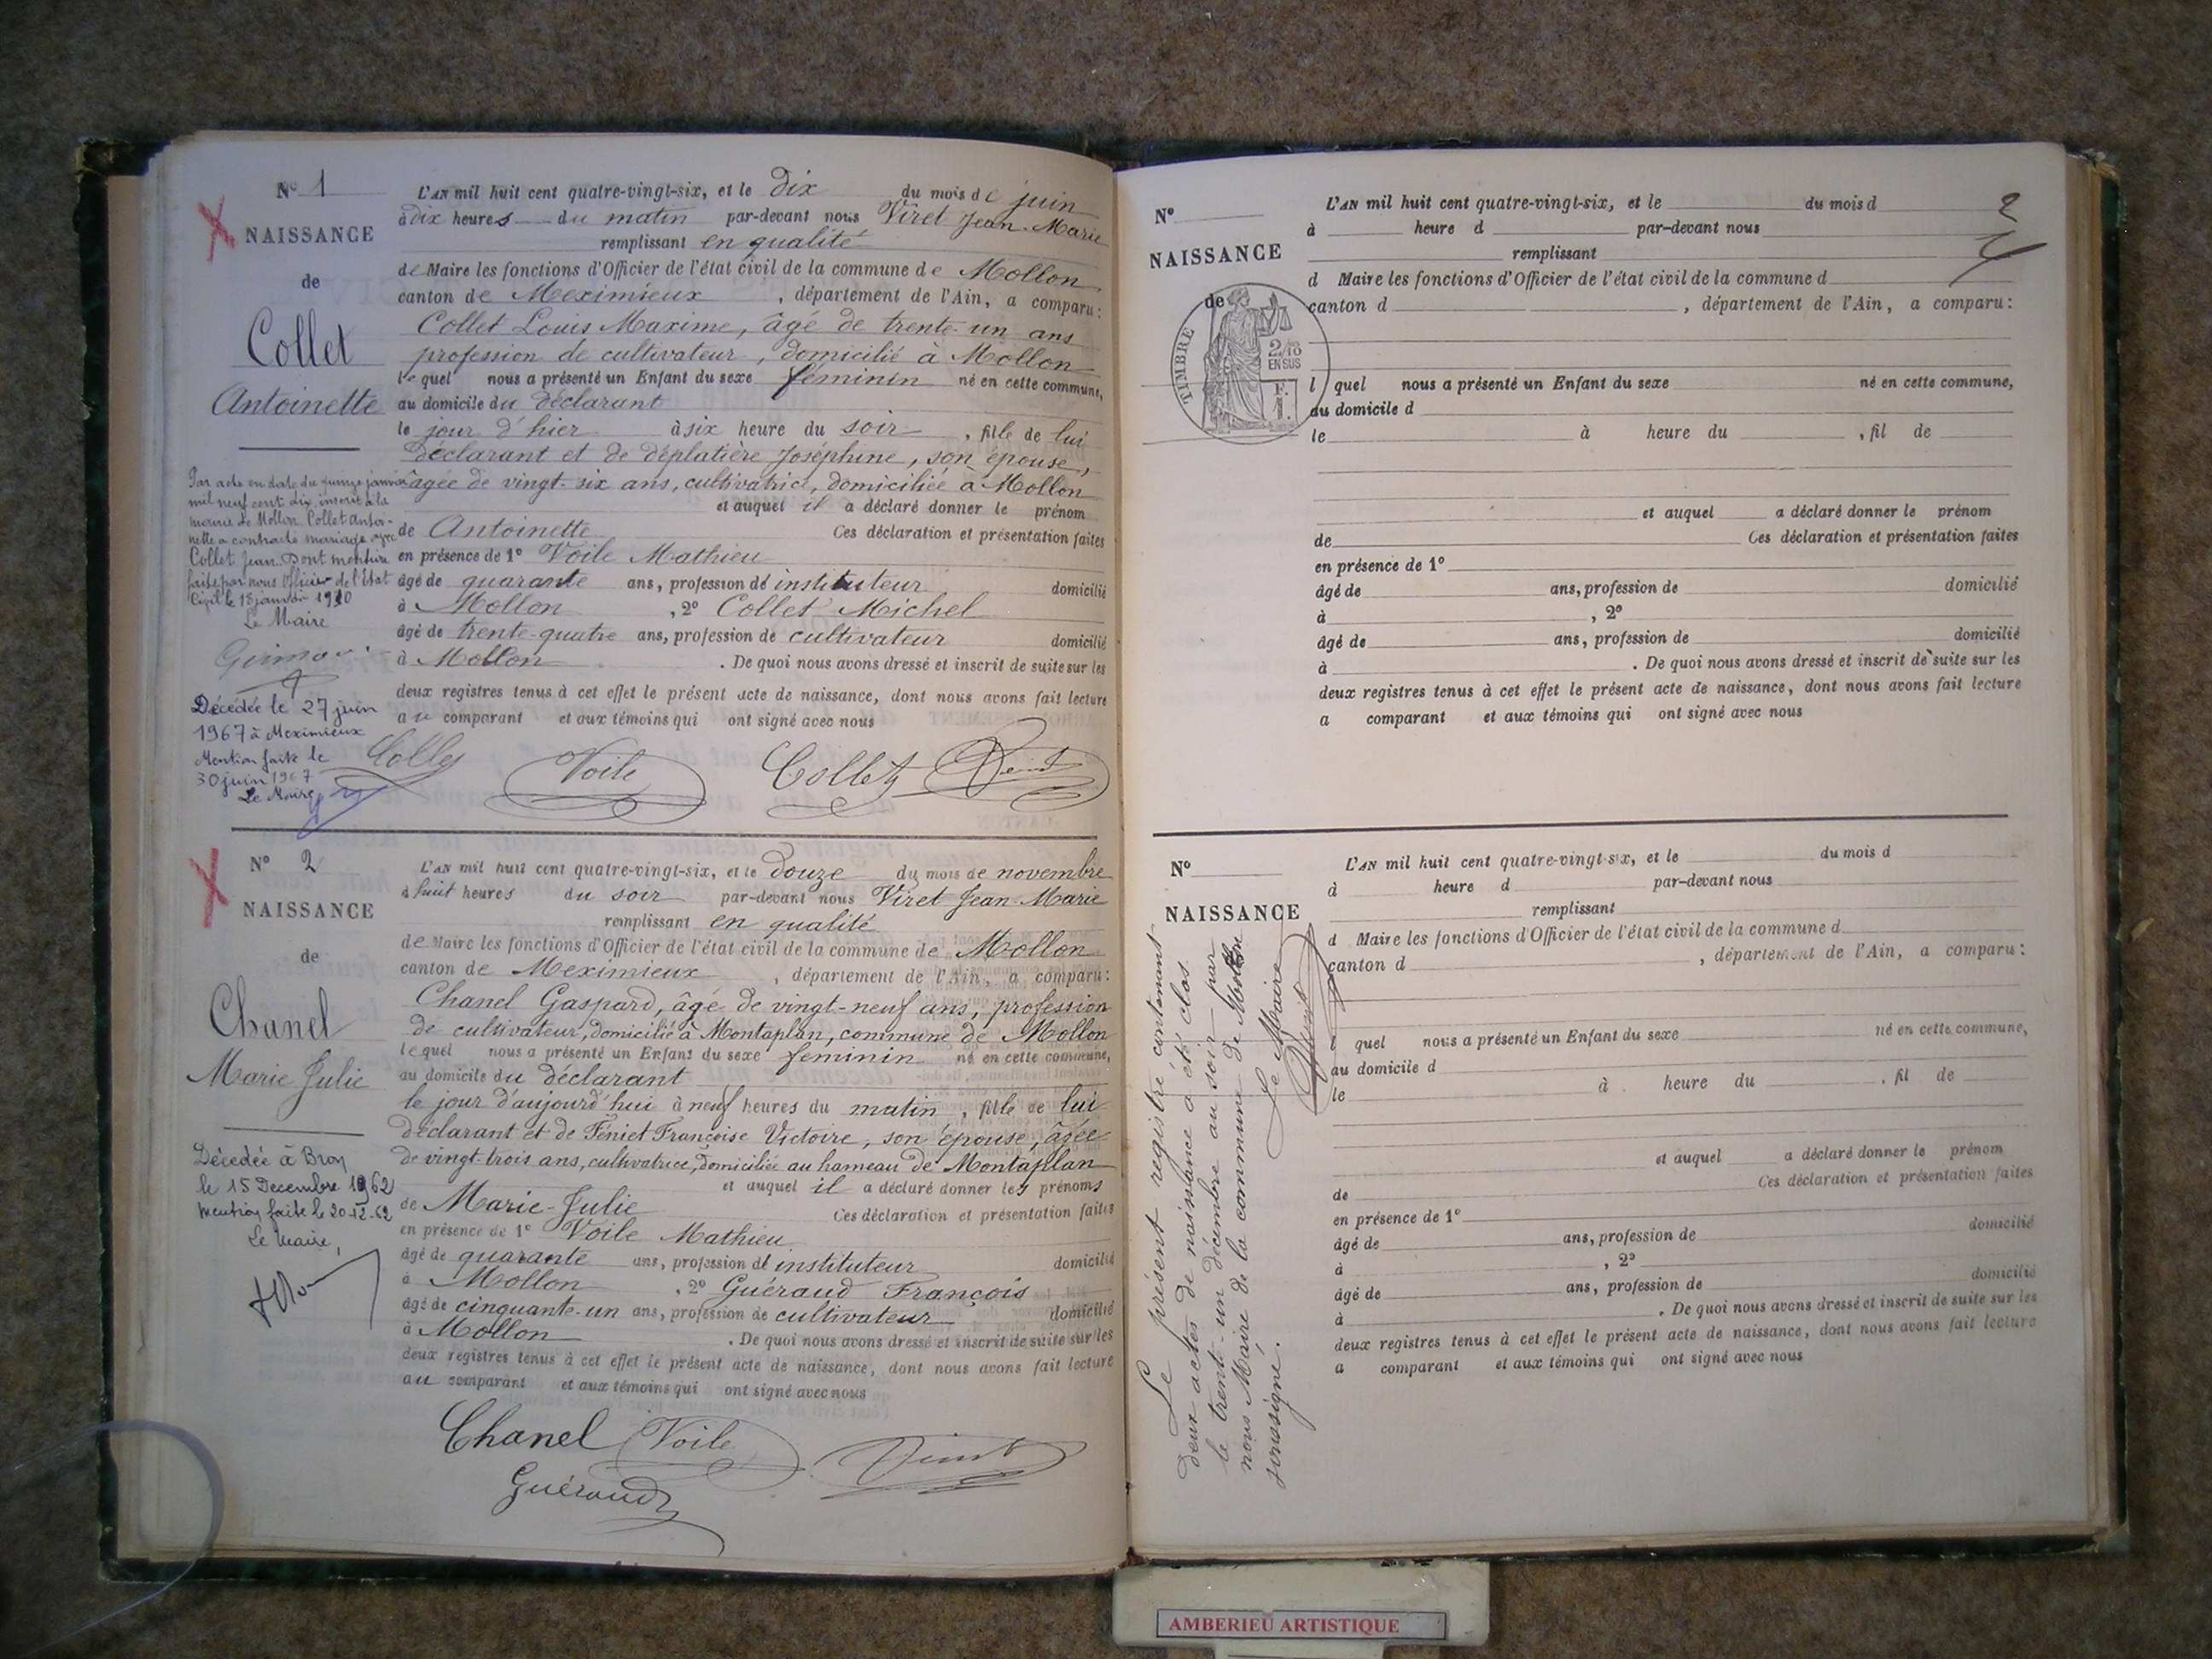 N° 1
NAISSANCE
de
Collet
Antoinette
L'AN mil huit cent quatre-vingt-six, et le dix du mois de juin
à dix heures du matin par-devant nous Viret Jean-Marie
remplissant en qualité
de Maire les fonctions d'Officier de l'état civil de la commune de Mollon
canton de Meximieux, département de l'Ain, a comparu:
Collet Louis Maxime, âgé de trente-un ans
profession de cultivateur, domicilié à Mollon
lequel nous a présenté un Enfant du sexe féminin né en cette commune,
au domicile du déclarant
le jour d'hier à six heure du soir, fille de lui
déclarant et de Déplatière Joséphine, son épouse,
âgée de vingt-six ans, cultivatrice, domiciliée à Mollon
et auquel il a déclaré donner le prénom
de Antoinette Ces déclaration et présentation faites
en présence de 1° Voile Mathieu
âgé de quarante ans, profession de instituteur domicilié
à Mollon, 2° Collet Michel
âgé de trente-quatre ans, profession de cultivateur domicilié
à Mollon. De quoi nous avons dressé et inscrit de suite sur les
deux registres tenus à cet effet le présent acte de naissance, dont nous avons fait lecture
au comparant et aux témoins qui ont signé avec nous
Voile Collet
Par acte en date du quinze janvier
mil neuf cent dix inscrit à la
mairie de Mollon Collet Antoi-
nette a contracté mariage avec
Collet Jean. Dont mention
faite par nous Officier de l'Etat
Civil le 15 janvier 1910
Le Maire
Décédée le 27 juin
1967 à Meximieux
Mention faite le
30 juin 1967
Le Maire
N° 2
NAISSANCE
de
Chanel
Marie Julie
L'AN mil huit cent quatre-vingt-six, et le douze du mois de novembre
à huit heures du soir par-devant nous Viret Jean-Marie
remplissant en qualité
de Maire les fonctions d'Officier de l'état civil de la commune de Mollon
canton de Meximieux, département de l'Ain, a comparu:
Chanel Gaspard, âgé de vingt-neuf ans, profession
de cultivateur, domicilié à Montaplan, commune de Mollon
lequel nous a présenté un Enfant du sexe féminin né en cette commune,
au domicile du déclarant
le jour d'aujourd'hui à neuf heures du matin, fille de lui
déclarant et de Féniet Françoise Victoire, son épouse, âgée
de vingt-trois ans, cultivatrice, domiciliée au hameau de Montaplan
et auquel il a déclaré donner les prénoms
de Marie-Julie Ces déclaration et présentation faites
en présence de 1° Voile Mathieu
âgé de quarante ans, profession de instituteur domicilié
à Mollon, 2° Guéraud François
âgé de cinquante-un ans, profession de cultivateur domicilié
à Mollon. De quoi nous avons dressé et inscrit de suite sur les
deux registres tenus à cet effet le présent acte de naissance, dont nous avons fait lecture
au comparant et aux témoins qui ont signé avec nous
Chanel Voile
Guéraud
Décédée à Bron
le 15 Decembre 1962
Mention faite le 20-12-62
Le Maire,
2
N°
NAISSANCE
de
TIMBRE
2/10
EN SUS
F.
1.
L'AN mil huit cent quatre-vingt-six, et le du mois d
à heure d par-devant nous
remplissant
d Maire les fonctions d'Officier de l'état civil de la commune d
canton d , département de l'Ain, a comparu:
l quel nous a présenté un Enfant du sexe né en cette commune,
au domicile d
le à heure du , fil de
et auquel a déclaré donner le prénom
de Ces déclaration et présentation faites
en présence de 1°
âgé de ans, profession de domicilié
à , 2°
âgé de ans, profession de domicilié
à . De quoi nous avons dressé et inscrit de suite sur les
deux registres tenus à cet effet le présent acte de naissance, dont nous avons fait lecture
a comparant et aux témoins qui ont signé avec nous
N°
NAISSANCE
L'AN mil huit cent quatre-vingt-six, et le du mois d
à heure d par-devant nous
remplissant
d Maire les fonctions d'Officier de l'état civil de la commune d
canton d , département de l'Ain, a comparu:
quel nous a présenté un Enfant du sexe né en cette commune,
au domicile d
le à heure du , fil de
et auquel a déclaré donner le prénom
de Ces déclaration et présentation faites
en présence de 1°
âgé de ans, profession de domicilié
à , 2°
âgé de ans, profession de domicilié
à . De quoi nous avons dressé et inscrit de suite sur les
deux registres tenus à cet effet le présent acte de naissance, dont nous avons fait lecture
a comparant et aux témoins qui ont signé avec nous
Le présent registre contenant
deux actes de naissance a été clos
le trente-un décembre au soir par
nous Maire de la commune de Mollon
soussigné.
Le Maire
AMBERIEU ARTISTIQUE